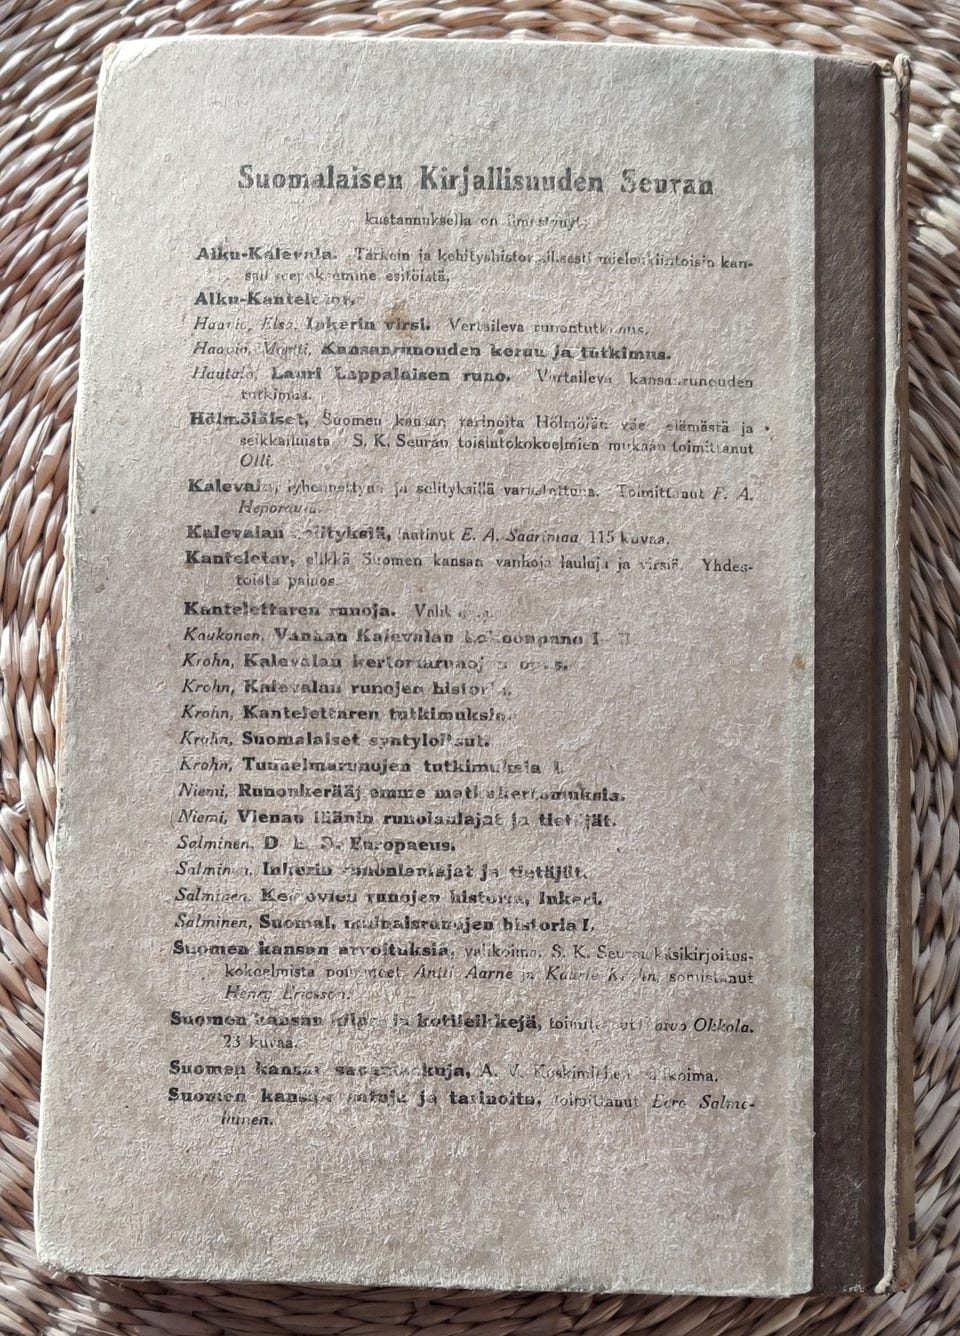 Suomalaisen Kirjallisuuden Seuran
kustannuksella on ilmestynyt:
Alku-Kalevala. Tärkein ja kehityshistoriallisesti mielenkiintoisin kan-
esitöistä.
Alku-Kanteletar.
Haavio, Elsa, Inkerin virsi. Vertaileva runontutkimus.
Haavio, Martti, Kansanrunouden keruu ja tutkimus.
Hautala, Lauri Lappalaisen runo. Vertaileva kansanrunouden
tutkimus.
Hölmöläiset, Suomen kansan tarinoita Hölmölän väen elämästä ja
seikkailuista S. K. Seuran toisintokokoelmien mukaan toimittanut
Olli.
Kalevala, lyhennettynä ja selityksillä varustettuna. Toimittanut F. A.
Heporauta.
Kalevalan selityksiä, laatinut E. A. Saarimaa 115 kuvaa.
Kanteletar, elikkä Suomen kansan vanhoja lauluja ja virsiä. Yhdes-
toista painos.
Kantelettaren runoja.
Kaukonen, Vanhan Kalevalan kokoonpano I-II
Krohn, Kalevalan kertomarunojen opas.
Krohn, Kalevalan runojen historia.
Krohn, Kantelettaren tutkimuksia.
Krohn, Suomalaiset syntyloitsut.
Krohn, Tunnelmarunojen tutkimuksia I.
Niemi, Runonkerääjiemme matkakertomuksia.
Niemi, Vienan läänin runolaulajat ja tietäjät.
Salminen, D. E. D. Europaeus.
Salminen, Inkerin runonlaulajat ja tietäjät.
Salminen, Kertovien runojen historia, Inkeri.
Salminen, Suomal. muinaisrunojen historia I.
Suomen kansan arvoituksia, valikoima. S. K. Seuran käsikirjoitus-
kokoelmista poimineet Antti Aarne ja Kaarle Krohn, somistanut
Henry Ericsson.
Suomen kansan kilpa- ja kotileikkejä, toimittanut Toivo Okkola.
23 kuvaa.
Suomen kansan sananlaskuja, A. V. Koskimiehen valikoima.
Suomen kansan satuja ja tarinoita, toimittanut Eero Salme-
lainen.